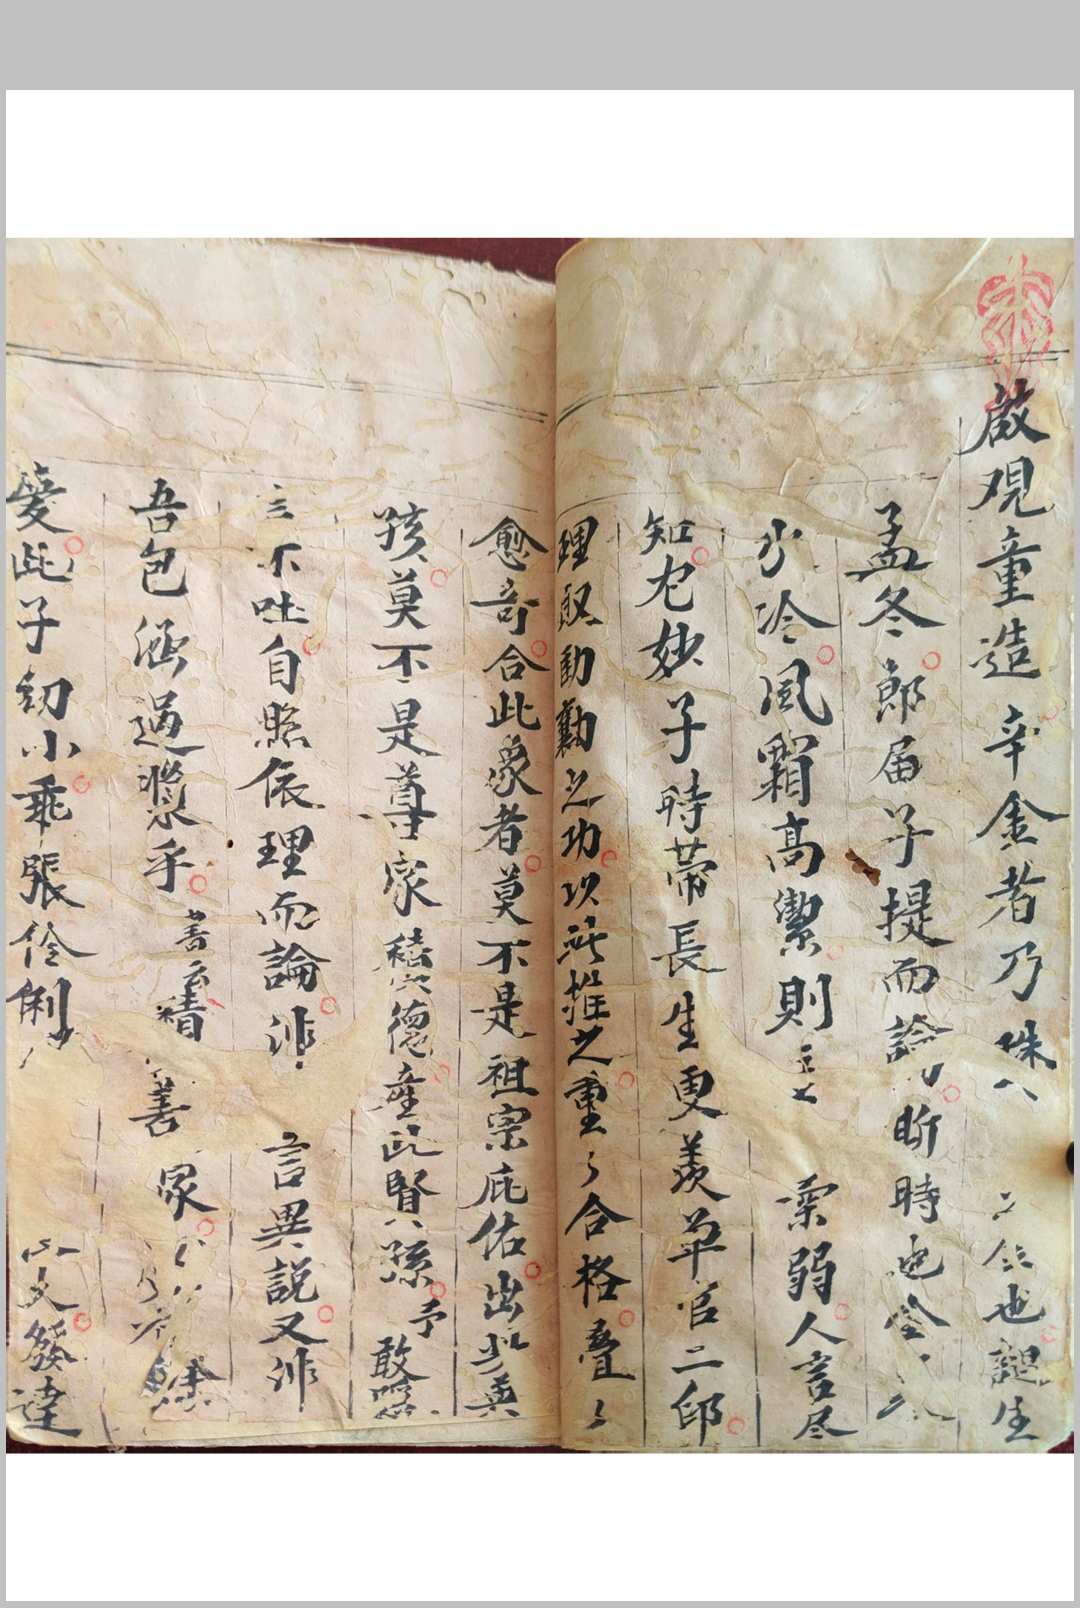 啟观童造辛金者乃珠 也 生
孟冬郎届子提而論 昕時也金
少冷風霜高潔則 柔弱人言尽
知尤妙子時帶長生更羨平官二印
理取勤之功以此推之重々合格叠々
愈奇合此像者莫不是祖宗庇佑出此英
孩莫不是尊家積德產此賢孫予敢
言不吐自照依理而論非 言異說又非
吾包涵過獎乎 善云積善 家 餘
爱此子幼小乖張伶俐 文發達